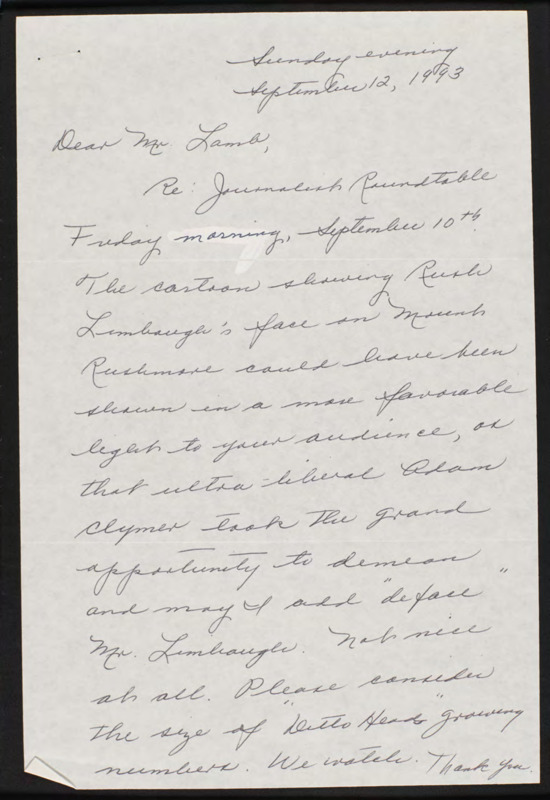 Sunday evening
September 12, 1993
Dear Mr. Lamb,
Re: Journalist Roundtable
Friday morning, September 10th.
The cartoon showing Rush
Limbaugh's face on Mount
Rushmore could have been
shown in a more favorable
light to your audience, as
that ultra-liberal Adam
Clymer took the grand
opportunity to demean
and may I add "deface"
Mr. Limbaugh. Not nice
at all. Please consider
the size of "Ditto Heads" growing
numbers. We watch. Thank you.